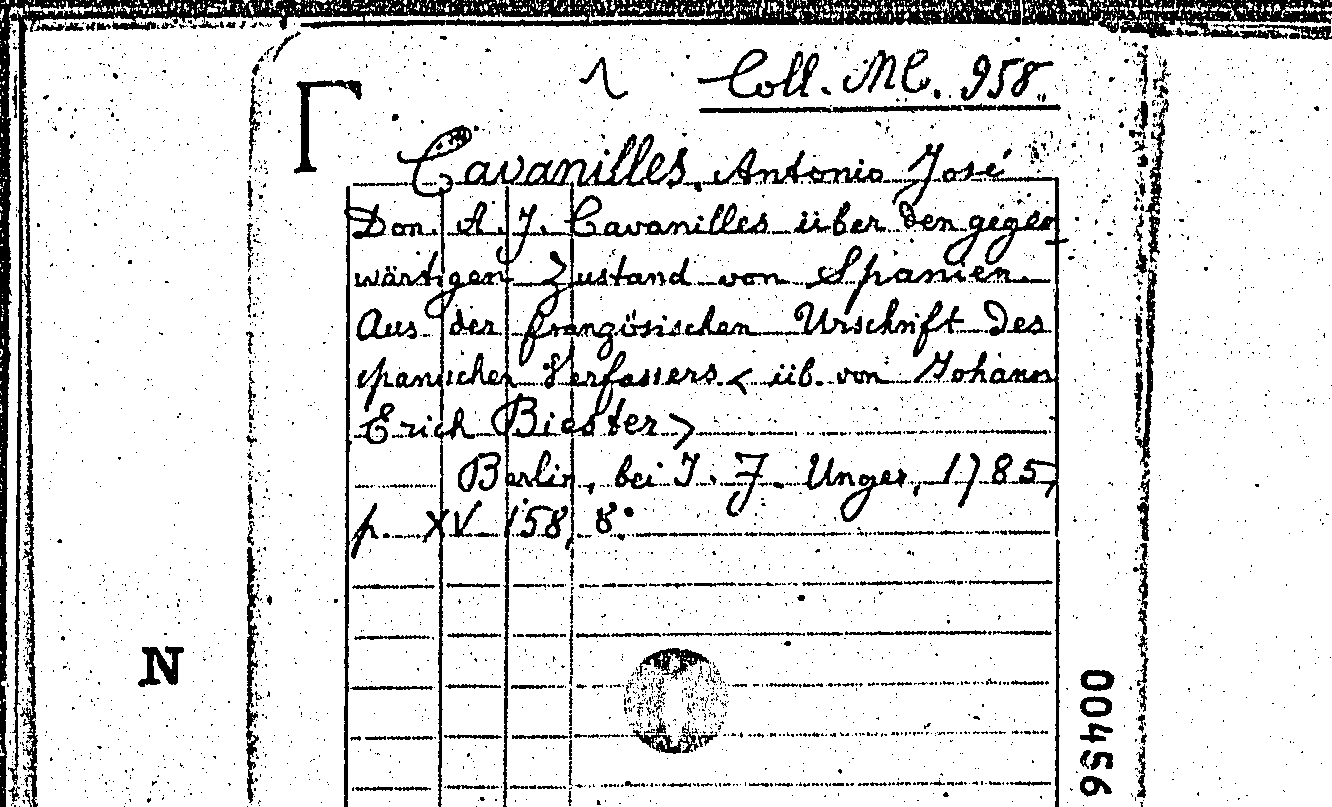 Coll. MC. 958.
Cavanilles, Antonio José
Don. A. J. Cavanilles über den gegen-
wärtigen Zustand von Spanien.
Aus der französischen Urschrift des
spanischen Verfassers < üb. von Johann
Erich Biester >
Berlin, bei J. F. Unger, 1785,
p. XV 158, 8°.
N
00456